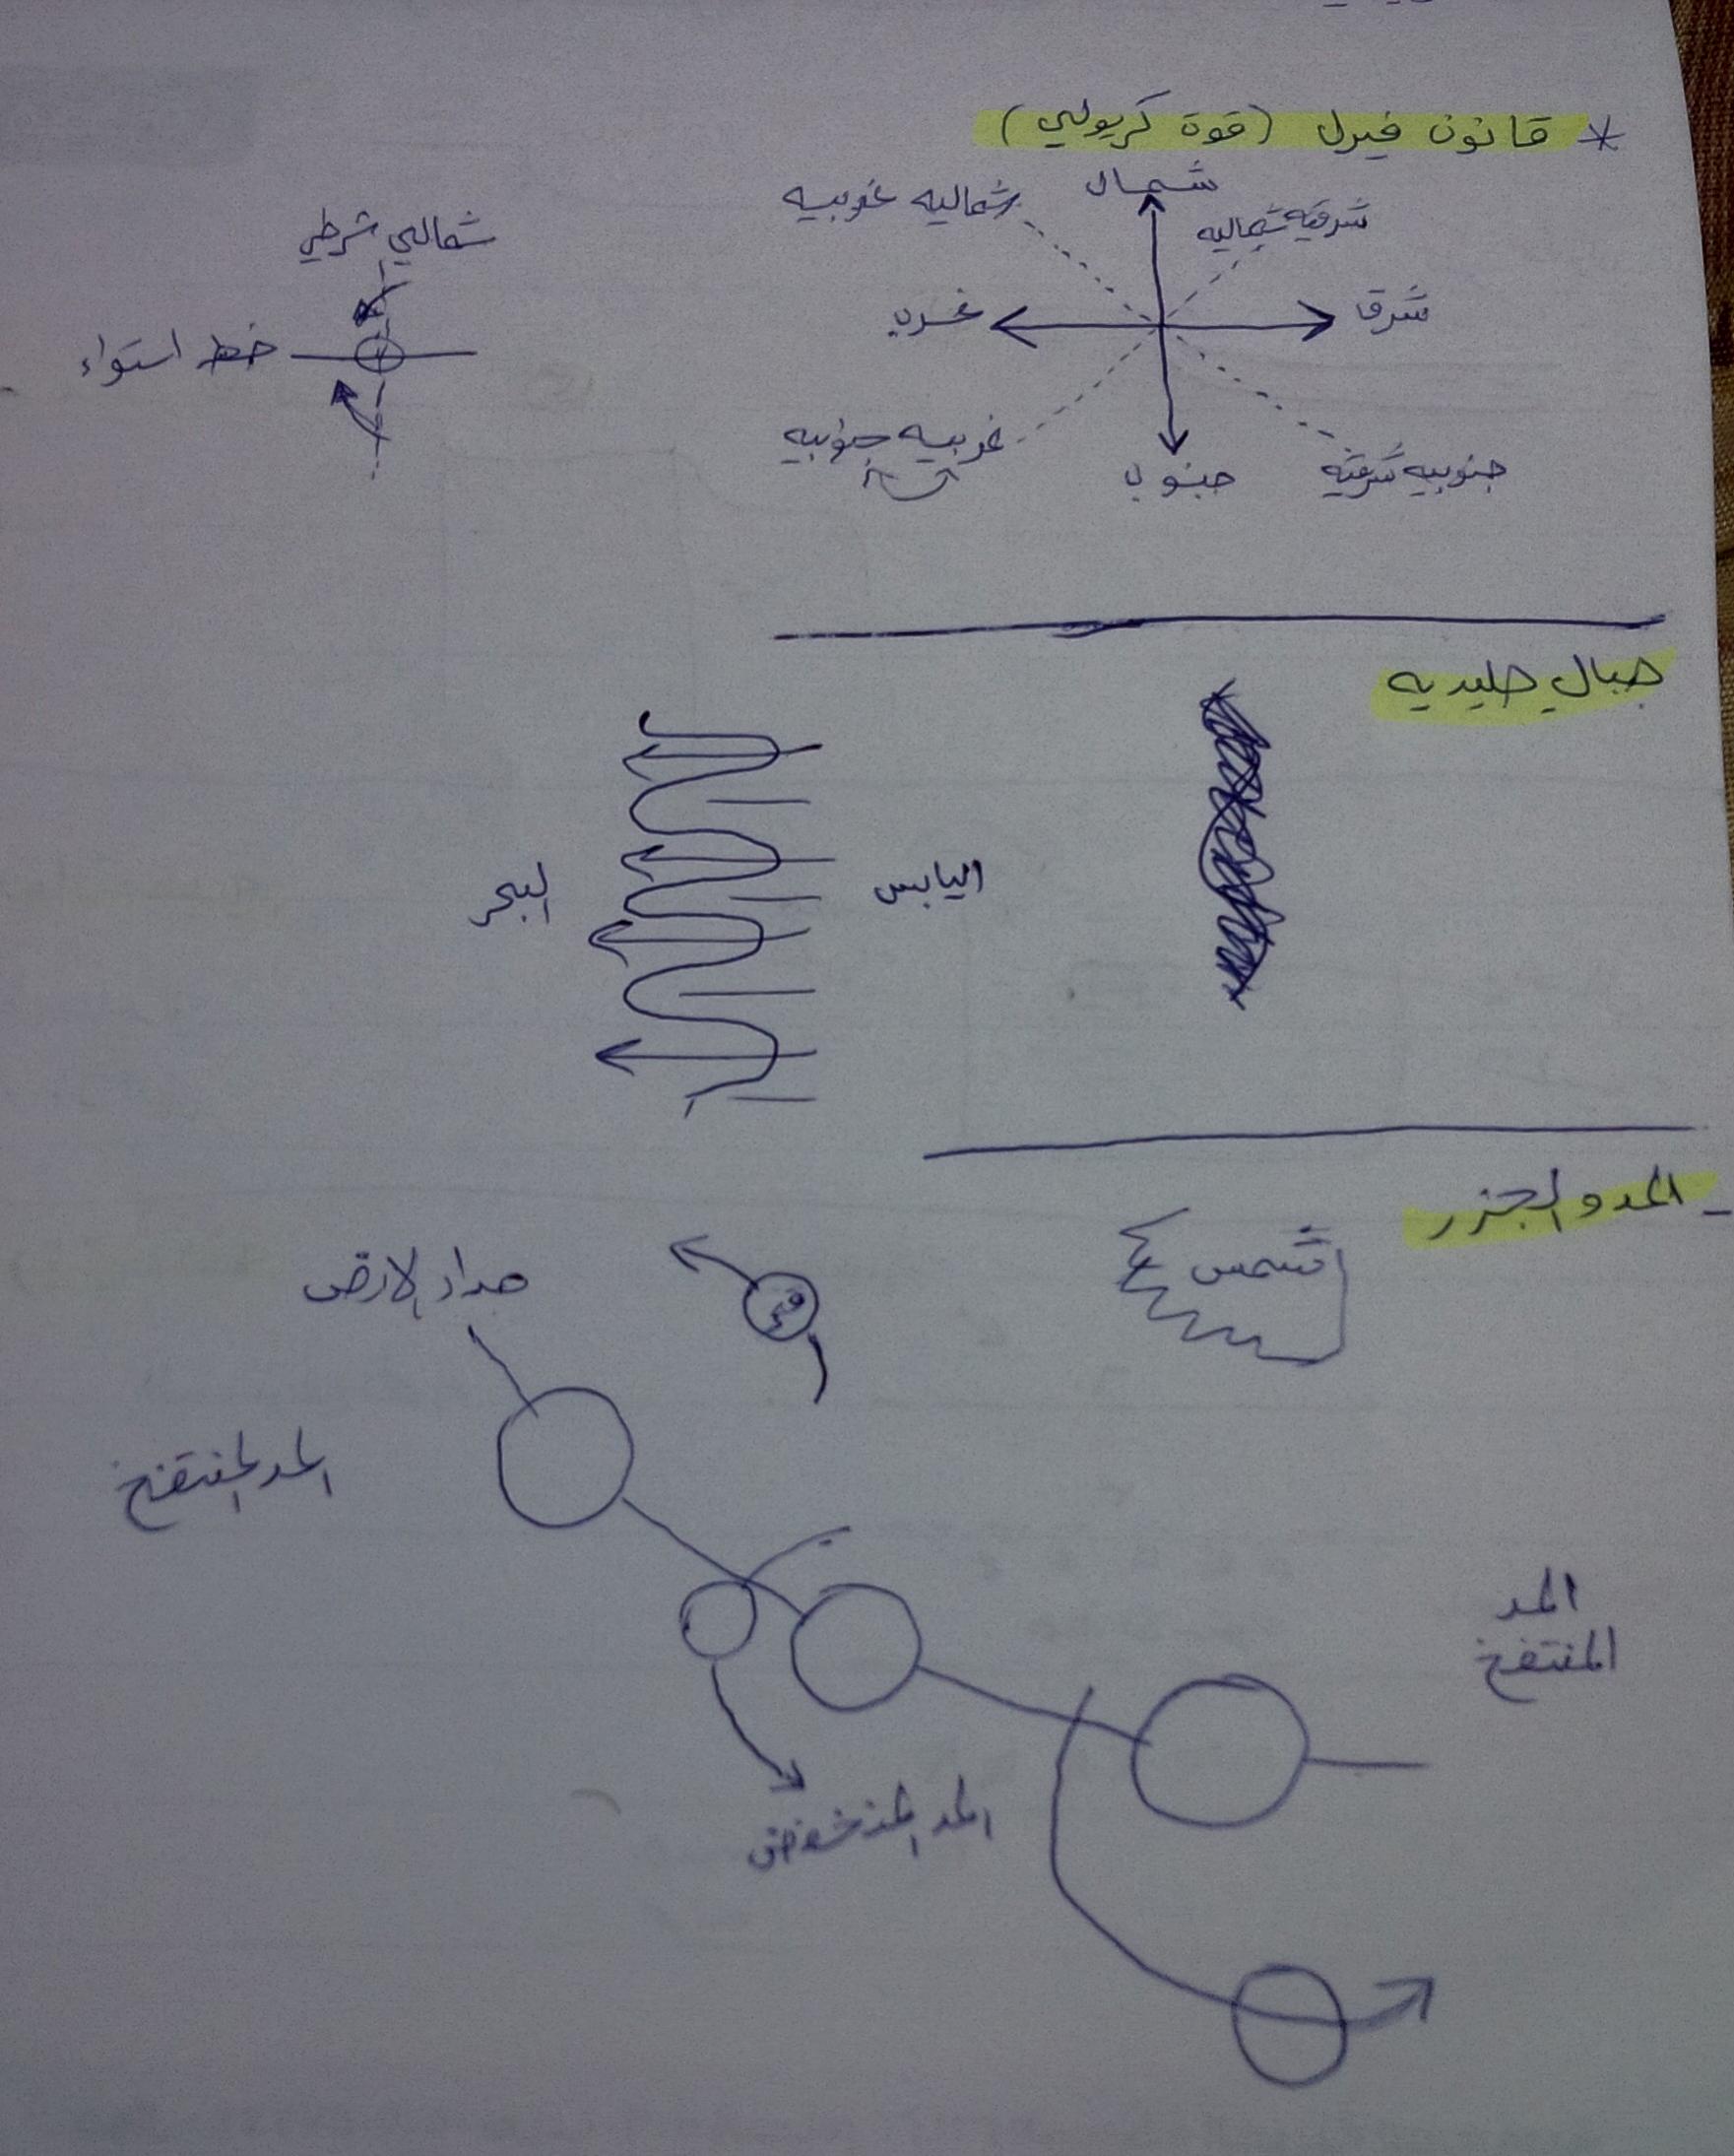 * قانون فيرل (قوة كريولي)
شمال
شرقيه شماليه
شماليه غربيه
شرق
غرب
جنوبيه شرقيه
جنوب
غربيه جنوبيه
شمالي شرقي
خط استواء
جبال جليديه
اليابس
البحر
- المد والجزر
شمس
قمر
مدار الارض
المد المنتفخ
المد
المنتفخ
المد المنخفض